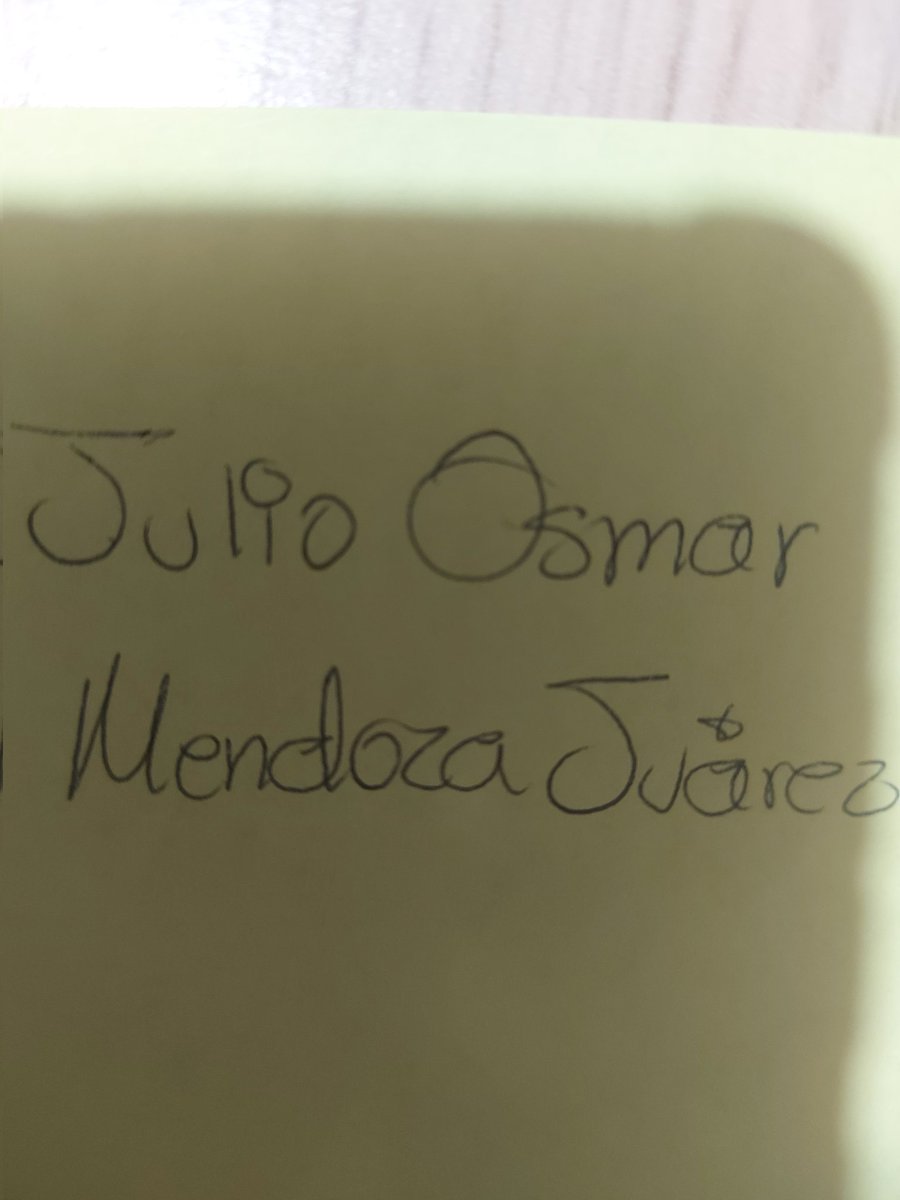 Julio Osmar
Mendoza Juárez